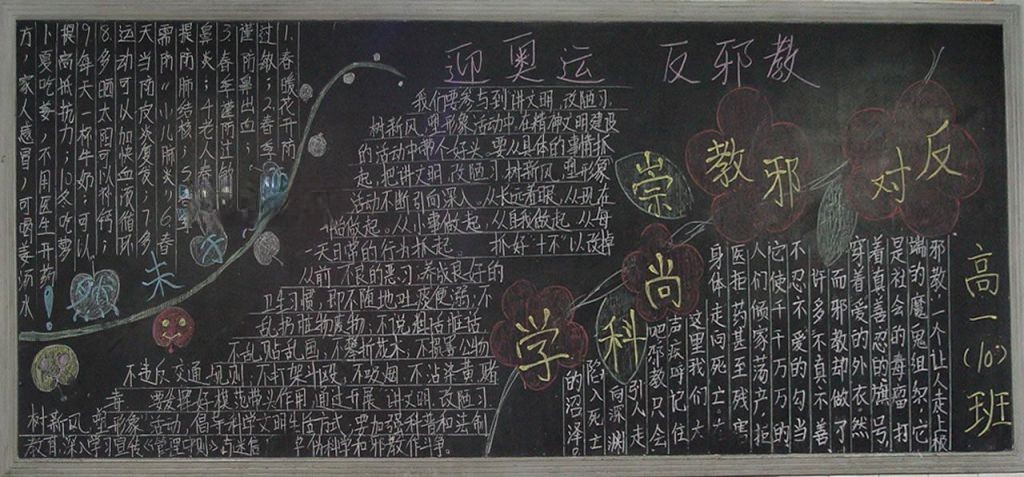 迎奥运 反邪教
反对
邪教
崇尚
科学
高一(10)班
我们要参与到讲文明,改陋习,
树新风,塑形象活动中,在精神文明建设
的活动中带个好头,要从具体的事情抓
起,把讲文明,改陋习,树新风,塑形象
活动不断引向深入。从长远着眼,从现在
做起。从小事做起,从自我做起,从每
一天日常的行为抓起。 抓好"十不"以改掉
从前不良的恶习,养成良好的
卫生习惯,即不随地吐痰便溺;不
乱扔脏物废物;不说粗话脏话
不乱贴乱画;不攀折花木;不损害公物
不违反交通规则;不打架斗殴;不吸烟;不沾染黄赌
毒 要发挥好模范带头作用,通过开展 讲文明,改陋习
树新风,塑形象 活动,倡导科学文明生活方式,要加强科普和法制
教育,深入学习宣传
和邪教作斗争。
邪教,一个让人走上极
端的魔鬼组织,它
是社会的毒瘤,打
着真善忍的旗号,
穿着爱的外衣。然
而邪教却做了
许多不真不善
不忍不爱的勾当
它使千千万万的
人们倾家荡产,拒
医拒药甚至残害
身体,走向死亡。在
这里我们大
声疾呼:记住
吧,邪教只会
引人走
向深渊
陷入死亡
的沼泽。
1、春暖花开防
过敏;2春季
谨防鼻出血;
3春季谨防过敏
鼻炎;4老人春
提防肺结核;5春季
需防"小儿肺炎";6春
天当防皮炎复发;7多
运动可以加快血液循环
8多晒太阳可以补钙;
9每天一杯牛奶,可以
提高抵抗力;10冬吃萝
卜夏吃姜,不用医生开药
方,家人感冒,可喝姜汤水!